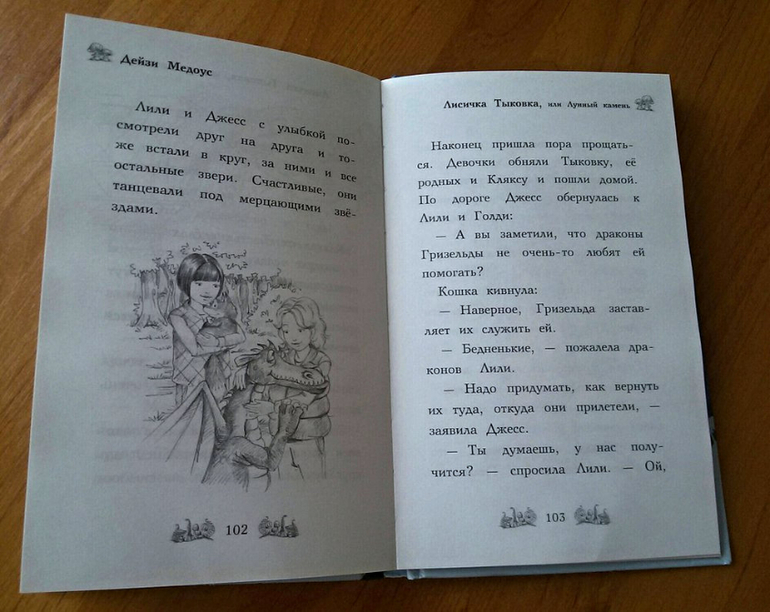 Дейзи Медоус
Лили и Джесс с улыбкой по-
смотрели друг на друга и то-
же встали в круг, за ними и все
остальные звери. Счастливые, они
танцевали под мерцающими звё-
здами.
102
Лисичка Тыковка, или Лунный камень
Наконец пришла пора прощать-
ся. Девочки обняли Тыковку, её
родных и Кляксу и пошли домой.
По дороге Джесс обернулась к
Лили и Голди:
— А вы заметили, что драконы
Гризельды не очень-то любят ей
помогать?
Кошка кивнула:
— Наверное, Гризельда застав-
ляет их служить ей.
— Бедненькие, — пожалела дра-
конов Лили.
— Надо придумать, как вернуть
их туда, откуда они прилетели, —
заявила Джесс.
— Ты думаешь, у нас полу-
чится? — спросила Лили. — Ой,
103